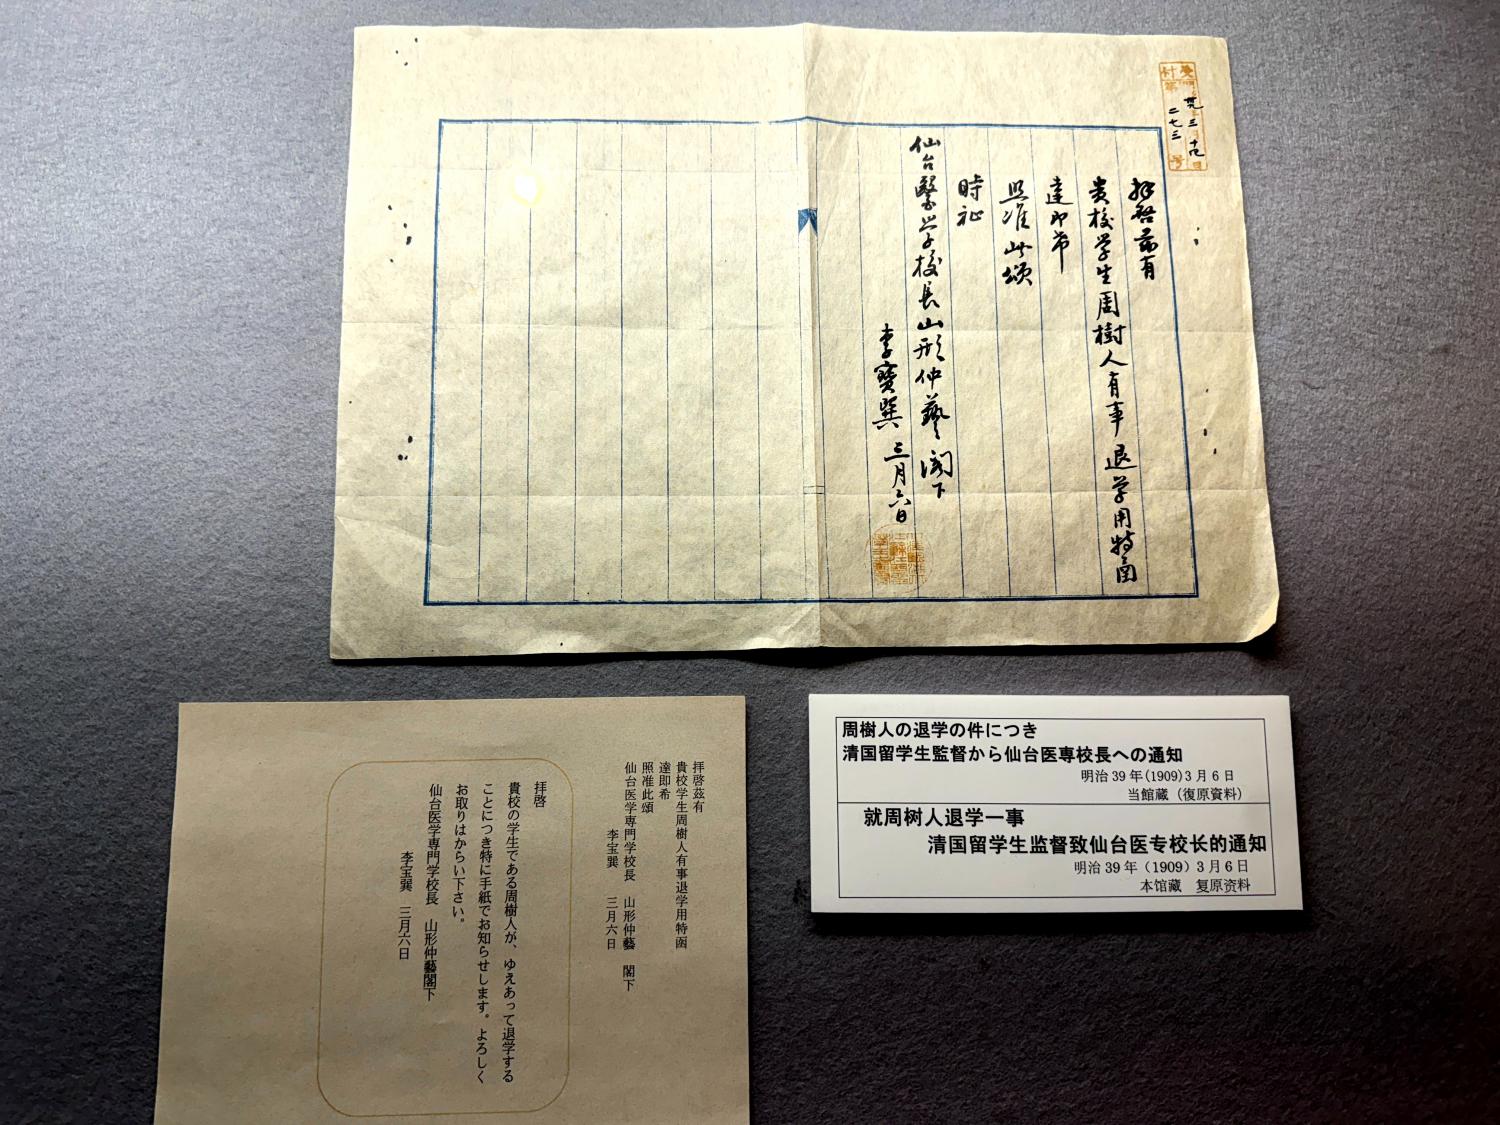 受付
明 卅九 三 十九日
第二七三号
拝啓茲有
貴校学生周樹人有事退学用特函
達即希
照准此頌
時祉
仙台醫学校長山形仲藝閣下
李寶巽 三月六日
拝啓茲有
貴校学生周樹人有事退学用特函
達即希
照准此頌
仙台医学専門学校長 山形仲藝 閣下
李宝巽 三月六日
拝啓
貴校の学生である周樹人が、ゆえあって退学する
ことにつき特に手紙でお知らせします。よろしく
お取りはからい下さい。
仙台医学専門学校長 山形仲藝閣下
李宝巽 三月六日
周樹人の退学の件につき
清国留学生監督から仙台医専校長への通知
明治39年(1909)3月6日
当館蔵（復原資料）
就周树人退学一事
清国留学生监督致仙台医专校长的通知
明治39年（1909）3月6日
本馆藏 复原资料